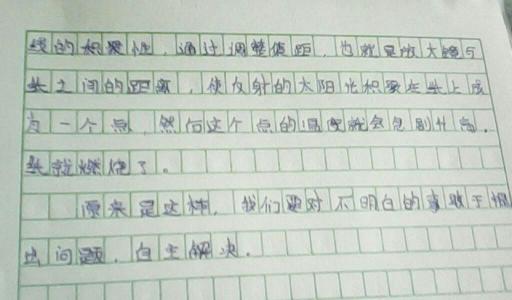 线的积聚性，通过调整值距，也就是放大镜与
头之间的距离，使反射的太阳光积聚在头上成
为一个点，然后这个点的温度就会急剧升高，
头就燃烧了。
原来是这样，我们要对不明白的事敢于提
出问题，自主解决。